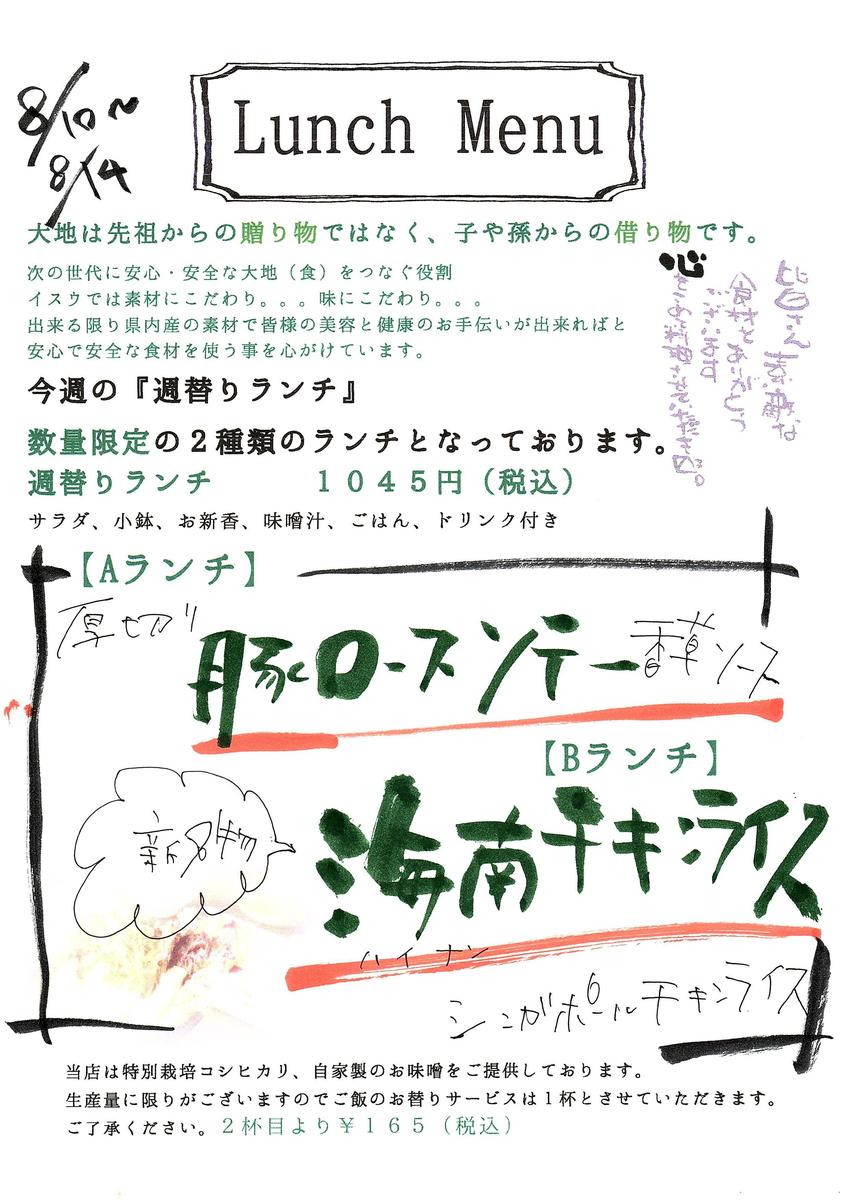 8/10〜
8/14
Lunch Menu
大地は先祖からの贈り物ではなく、子や孫からの借り物です。
次の世代に安心・安全な大地（食）をつなぐ役割
イスウでは素材にこだわり。。。味にこだわり。。。
出来る限り県内産の素材で皆様の美容と健康のお手伝いが出来ればと
安心で安全な食材を使う事を心がけています。
皆さん素敵な
食材をありがとう
ございます
心
今週の『週替りランチ』
数量限定の２種類のランチとなっております。
週替りランチ　　　１０４５円（税込）
サラダ、小鉢、お新香、味噌汁、ごはん、ドリンク付き
【Aランチ】
厚切り
豚ロースソテー香草ソース
【Bランチ】
新名物
海南チキンライス
ハイナン
シンガポールチキンライス
当店は特別栽培コシヒカリ、自家製のお味噌をご提供しております。
生産量に限りがございますのでご飯のお替りサービスは１杯とさせていただきます。
ご了承ください。２杯目より￥１６５（税込）